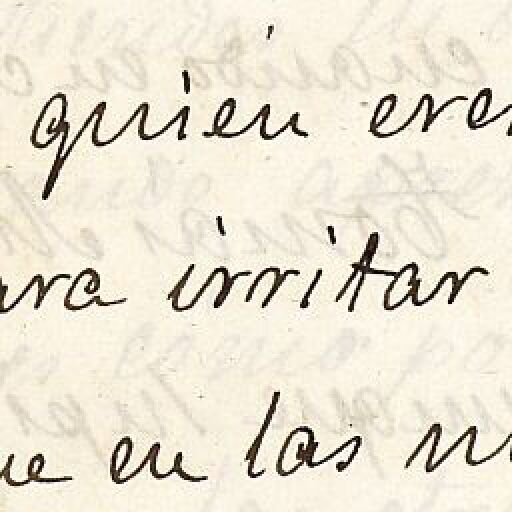 quien eres
ara irritar
ue en las